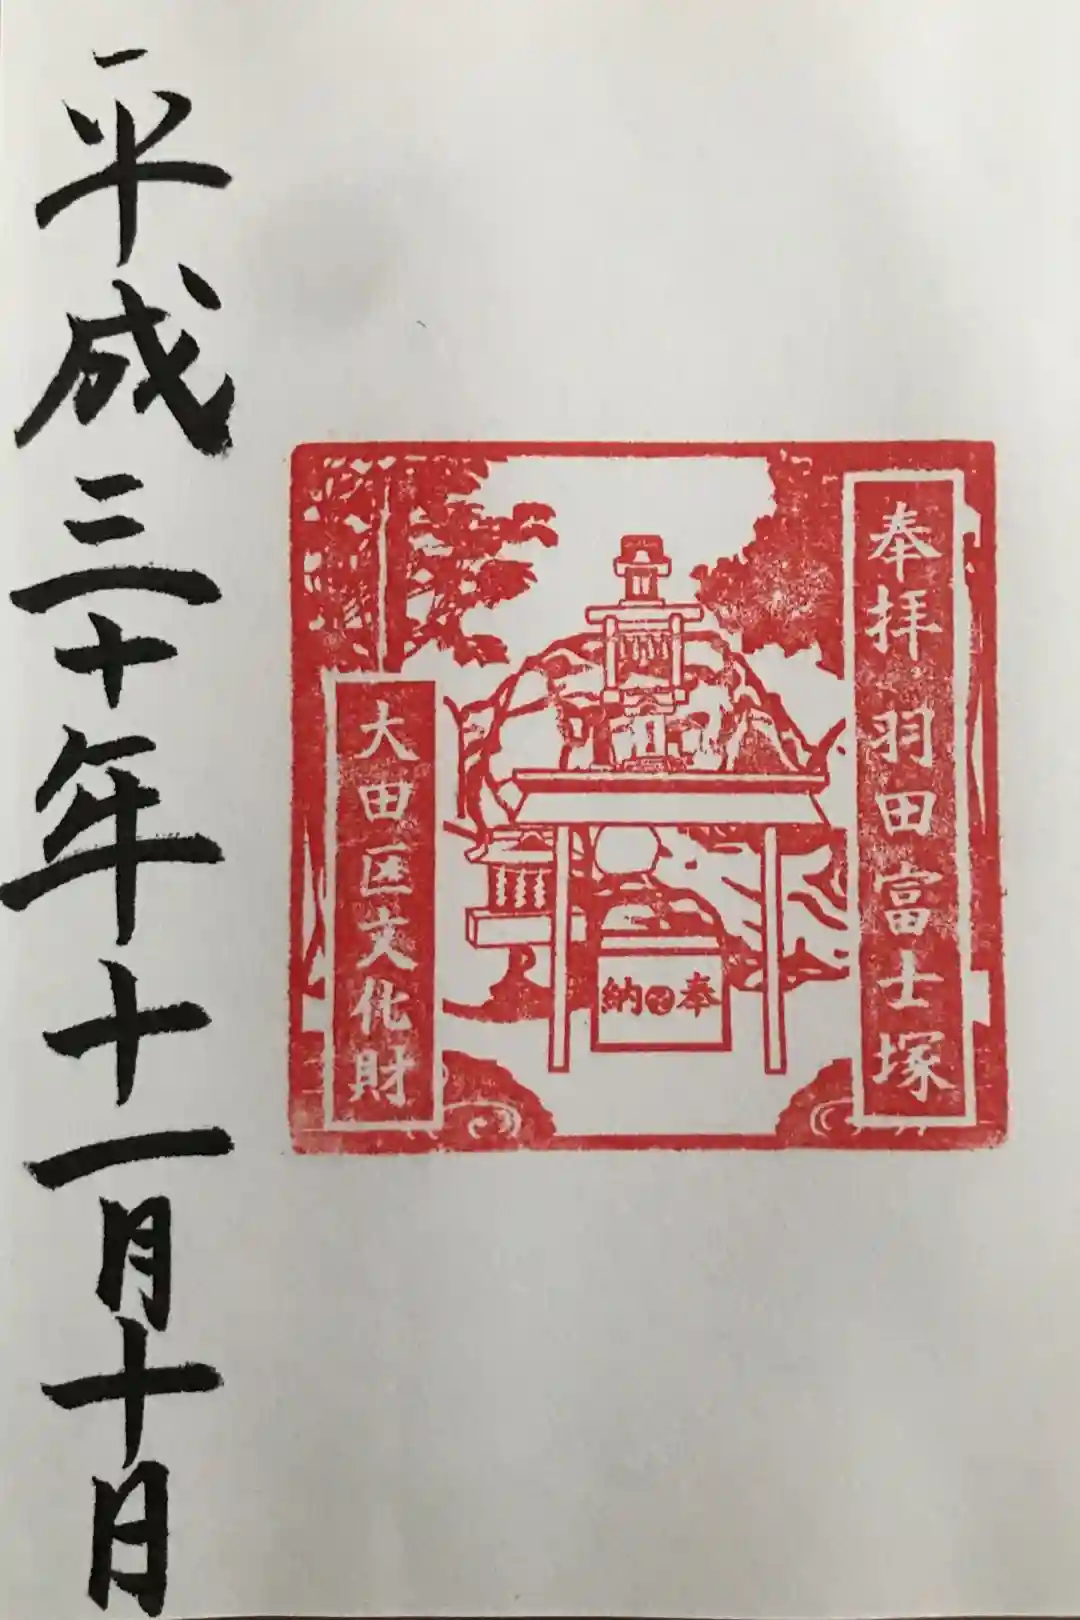 奉拝 羽田富士塚
奉納
大田区文化財
平成三十年十一月十日